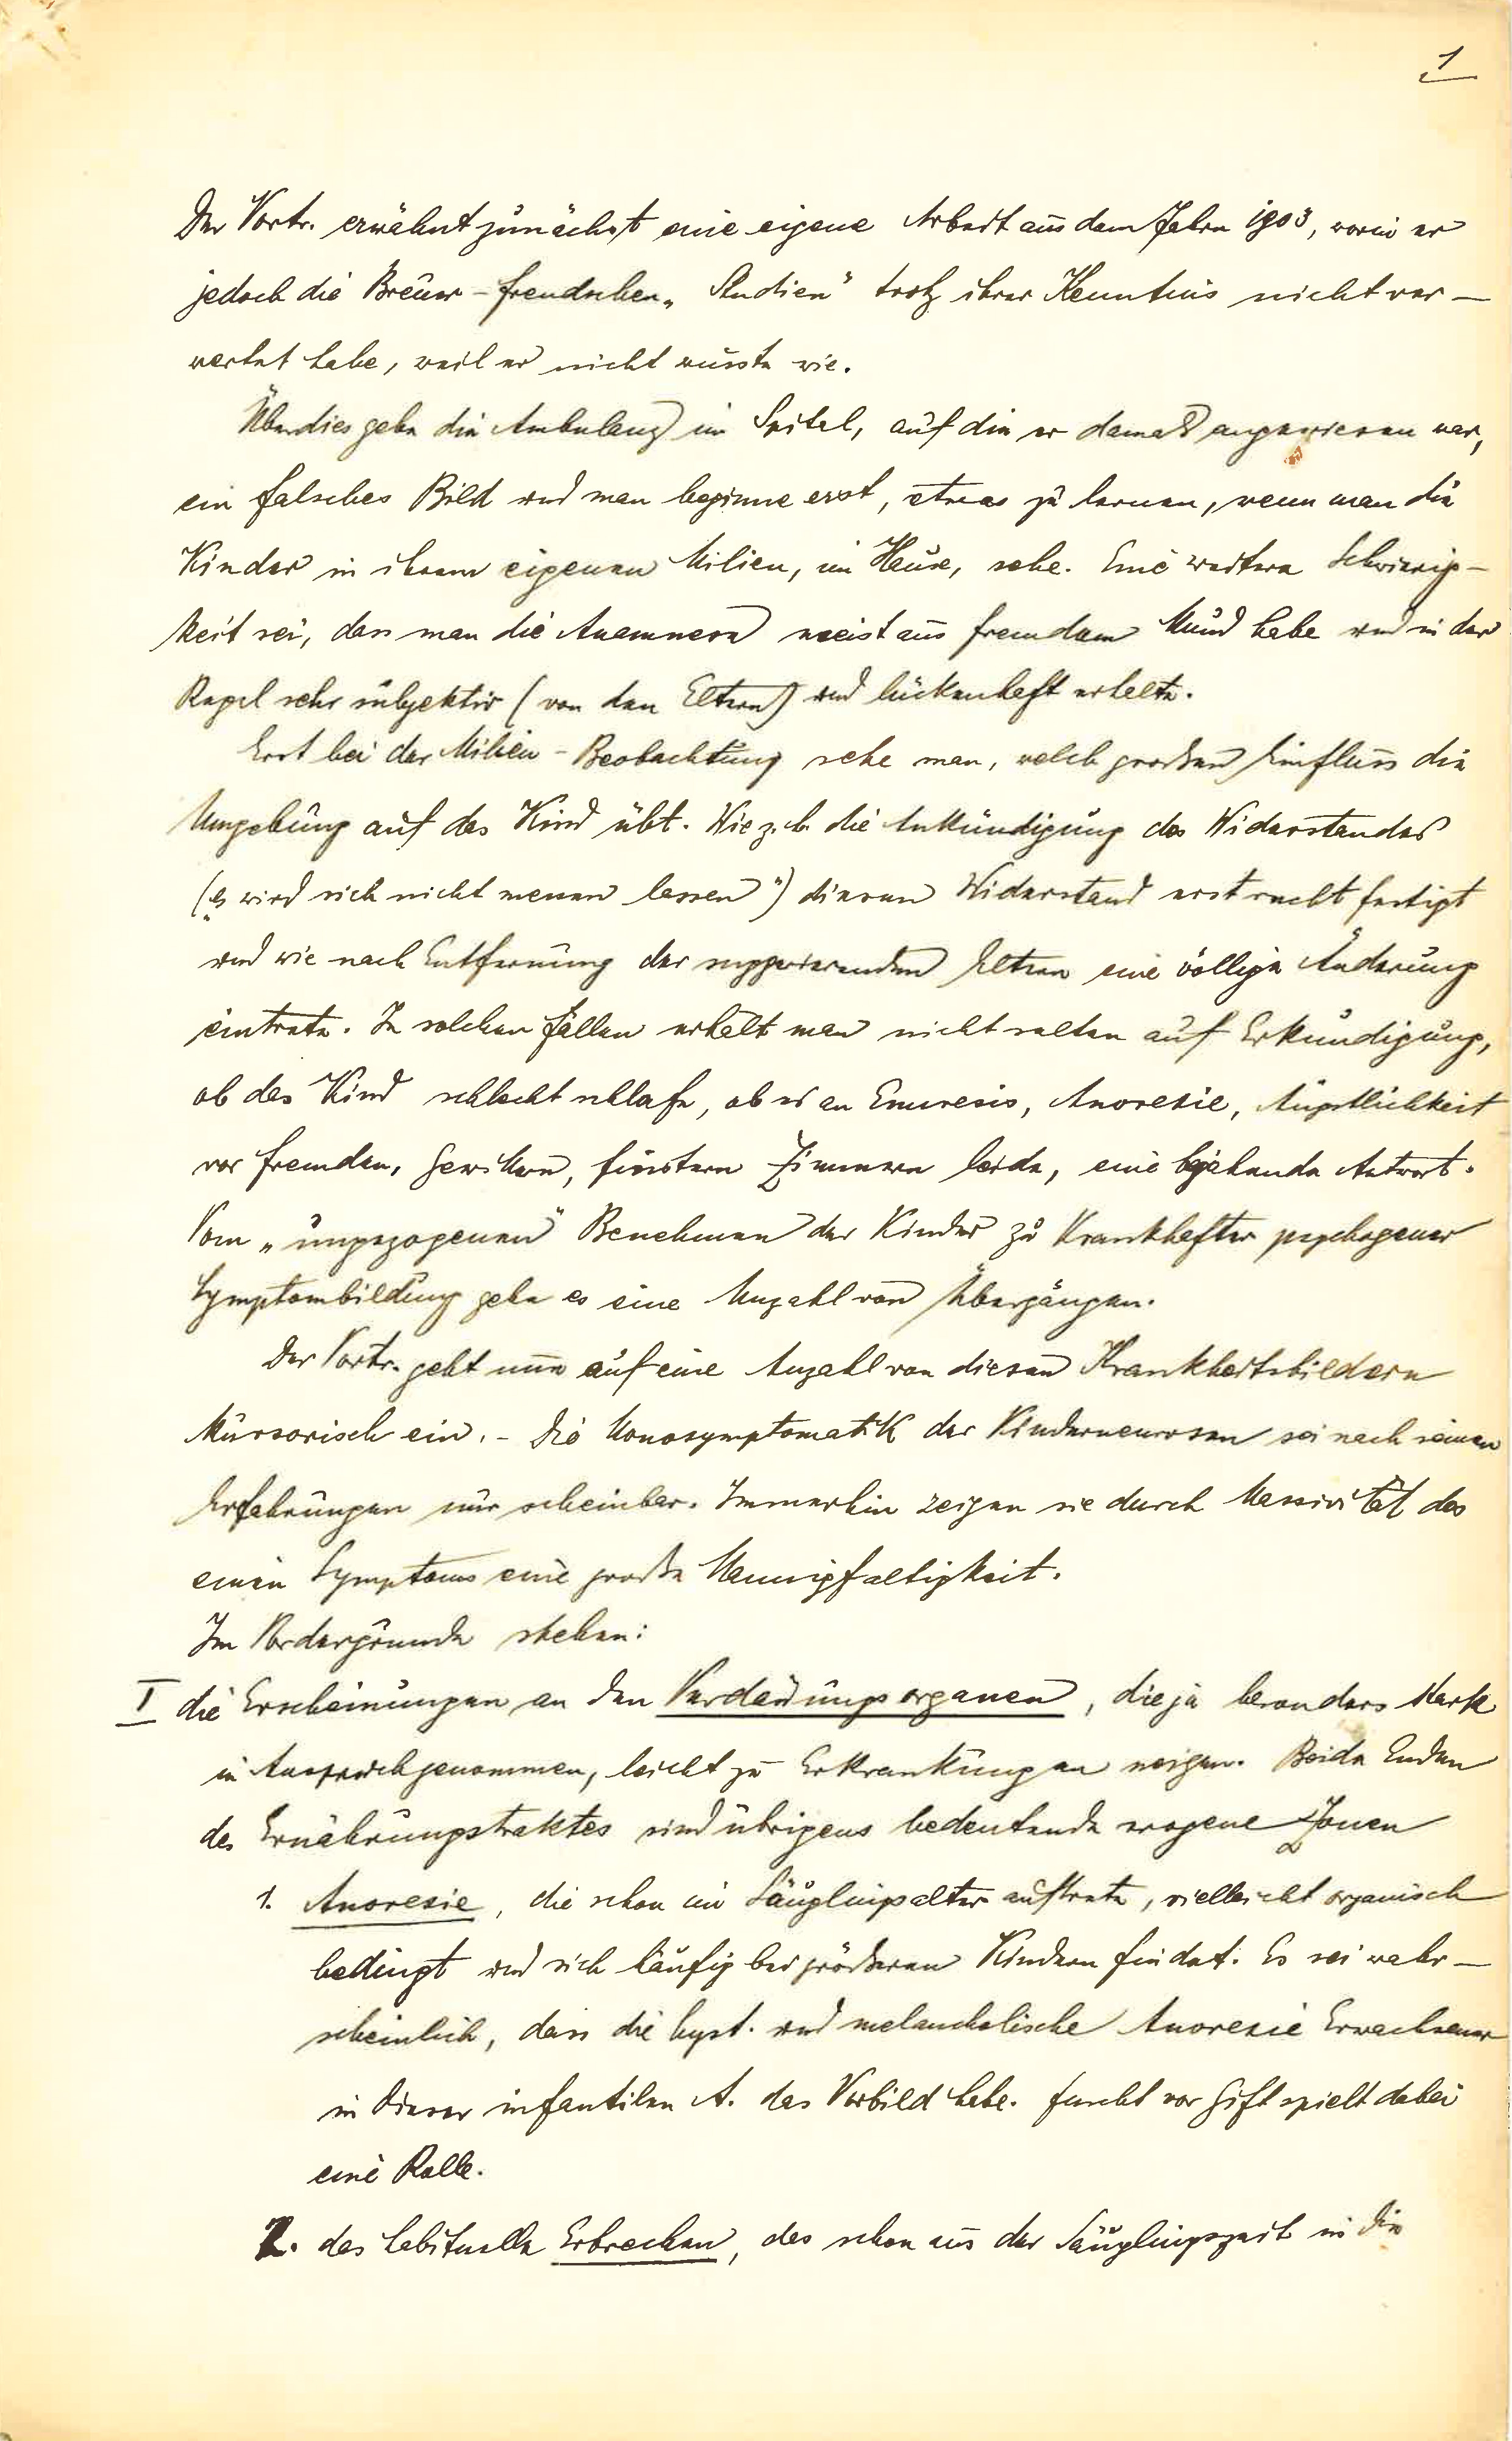 1
Der Vortr. erwähnt zunächst eine eigene Arbeit aus dem Jahre 1903, worin er
jedoch die Breuer-Freudschen „Studien" trotz ihrer Kenntnis nicht ver-
wertet habe, weil er nicht wusste wie.
Überdies gebe die Ambulanz im Spital, auf die er damals angewiesen war,
ein falsches Bild und man beginne erst, etwas zu lernen, wenn man die
Kinder in ihrem eigenen Milieu, im Hause, sehe. Eine weitere Schwierig-
keit sei, dass man die Anamnese meist aus fremdem Mund habe und in der
Regel sehr subjektiv (von den Eltern) und lückenhaft erhalte.
Erst bei der Milieu-Beobachtung sehe man, welch großen Einfluss die
Umgebung auf das Kind übt. Wie z.b. die Ankündigung des Widerstandes
(„Es wird sich nicht messen lassen") diesen Widerstand erst recht festigt
und wie nach Entfernung der suggerierenden Eltern eine völlige Änderung
eintrete. In solchen Fällen erhält man nicht selten auf Erkundigung,
ob das Kind schlecht schlafe, ob es an Enuresis, Anorexie, Ängstlichkeit
vor Fremden, Gewittern, finstern Zimmern leide, eine bejahende Antwort.
Vom „ungezogenen" Benehmen der Kinder zu krankhafter psychogener
Symptombildung gebe es eine Unzahl von Übergängen.
Der Vortr. geht nun auf eine Anzahl von diesen Krankheitsbildern
kursorisch ein. - Die Monosymptomatik der Kinderneurosen sei nach seinen
Erfahrungen nur scheinbar. Immerhin zeigen sie durch Massivität des
einen Symptoms eine große Mannigfaltigkeit.
Im Vordergrunde stehen:
I die Erscheinungen an den Verdauungsorganen, die ja besonders stark
in Anspruch genommen, leicht zu Erkrankungen neigen. Beide Enden
des Ernährungstraktes sind übrigens bedeutende erogene Zonen
1. Anorexie, die schon im Säuglingsalter auftrete, vielleicht organisch
bedingt und sich häufig bei größeren Kindern findet. Es sei wahr-
scheinlich, dass die hyst. und melancholische Anorexie Erwachsener
in dieser infantilen A. das Vorbild habe. Furcht vor Gift spielt dabei
eine Rolle.
2. das habituelle Erbrechen, das schon aus der Säuglingszeit in die